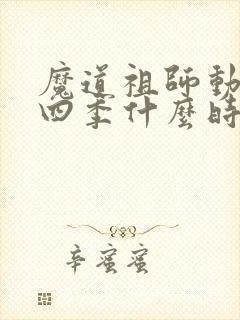 魔道祖師動
四季什麼時
辛蜜蜜